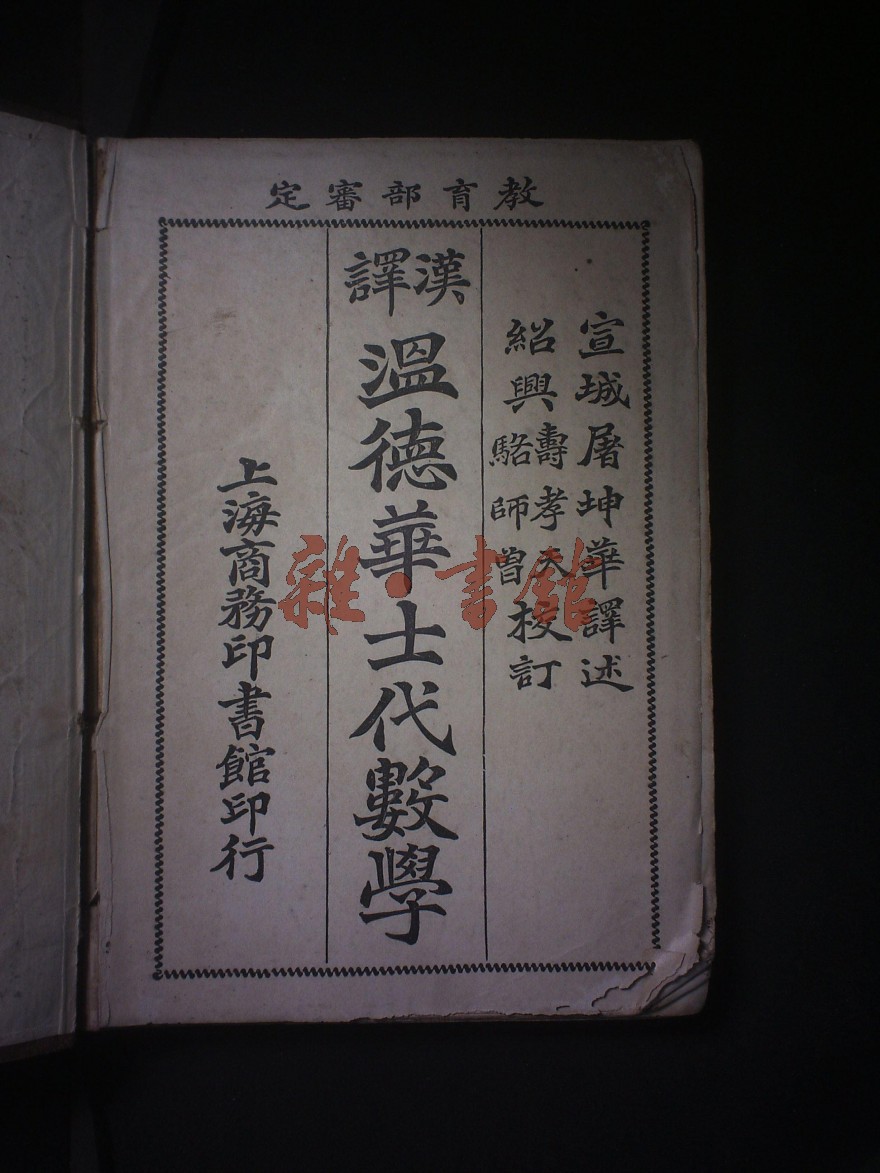 教育部審定
宣城屠坤華譯述
紹興壽孝天駱師曾校訂
漢譯
溫德華士代數學
上海商務印書館印行
雜·書館